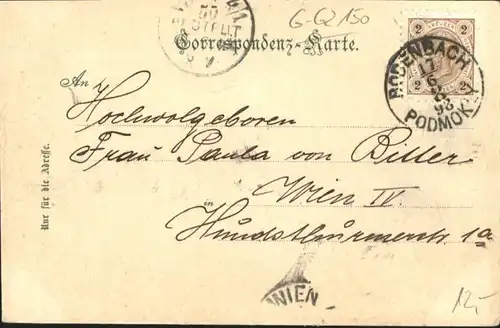 G-G2 150
BESTELLT
Correspondenz-Karte.
2 2
2 2
BODENBACH
17
6
98
PODMOKLY
An
Hochwolgeboren
Frau Paula von Bitter
Wien IV.
in
Hundsthurmerstr. 1a
Nur für die Adresse.
WIEN
12,-